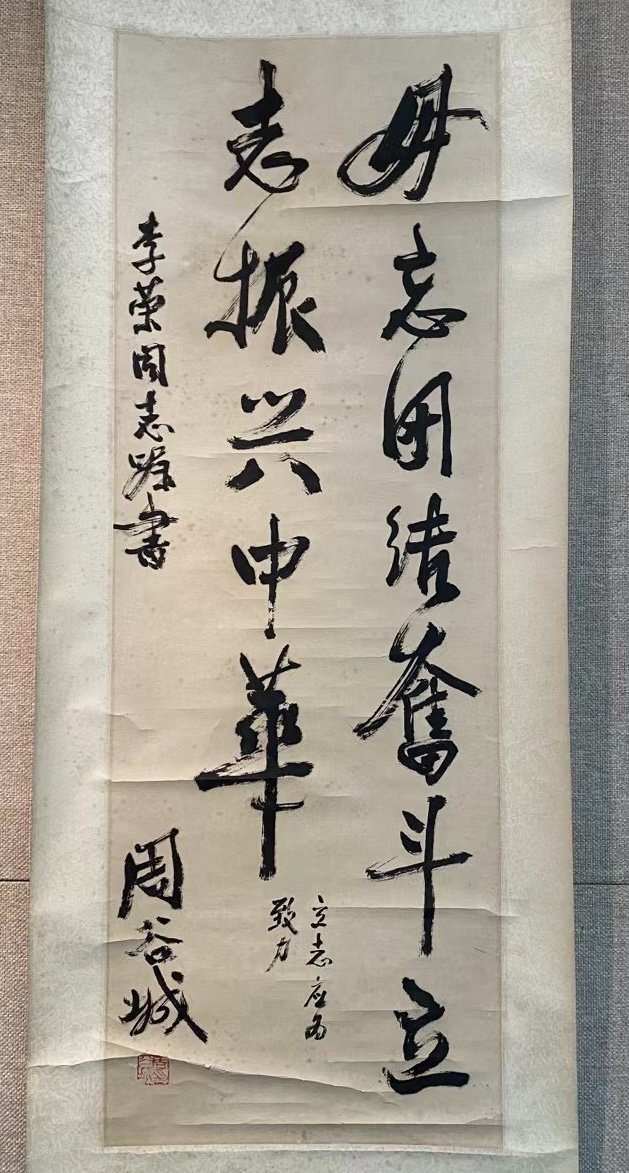 毋忘团结奋斗立
志振兴中華
立志应为
致力
李荣同志嘱書
周谷城